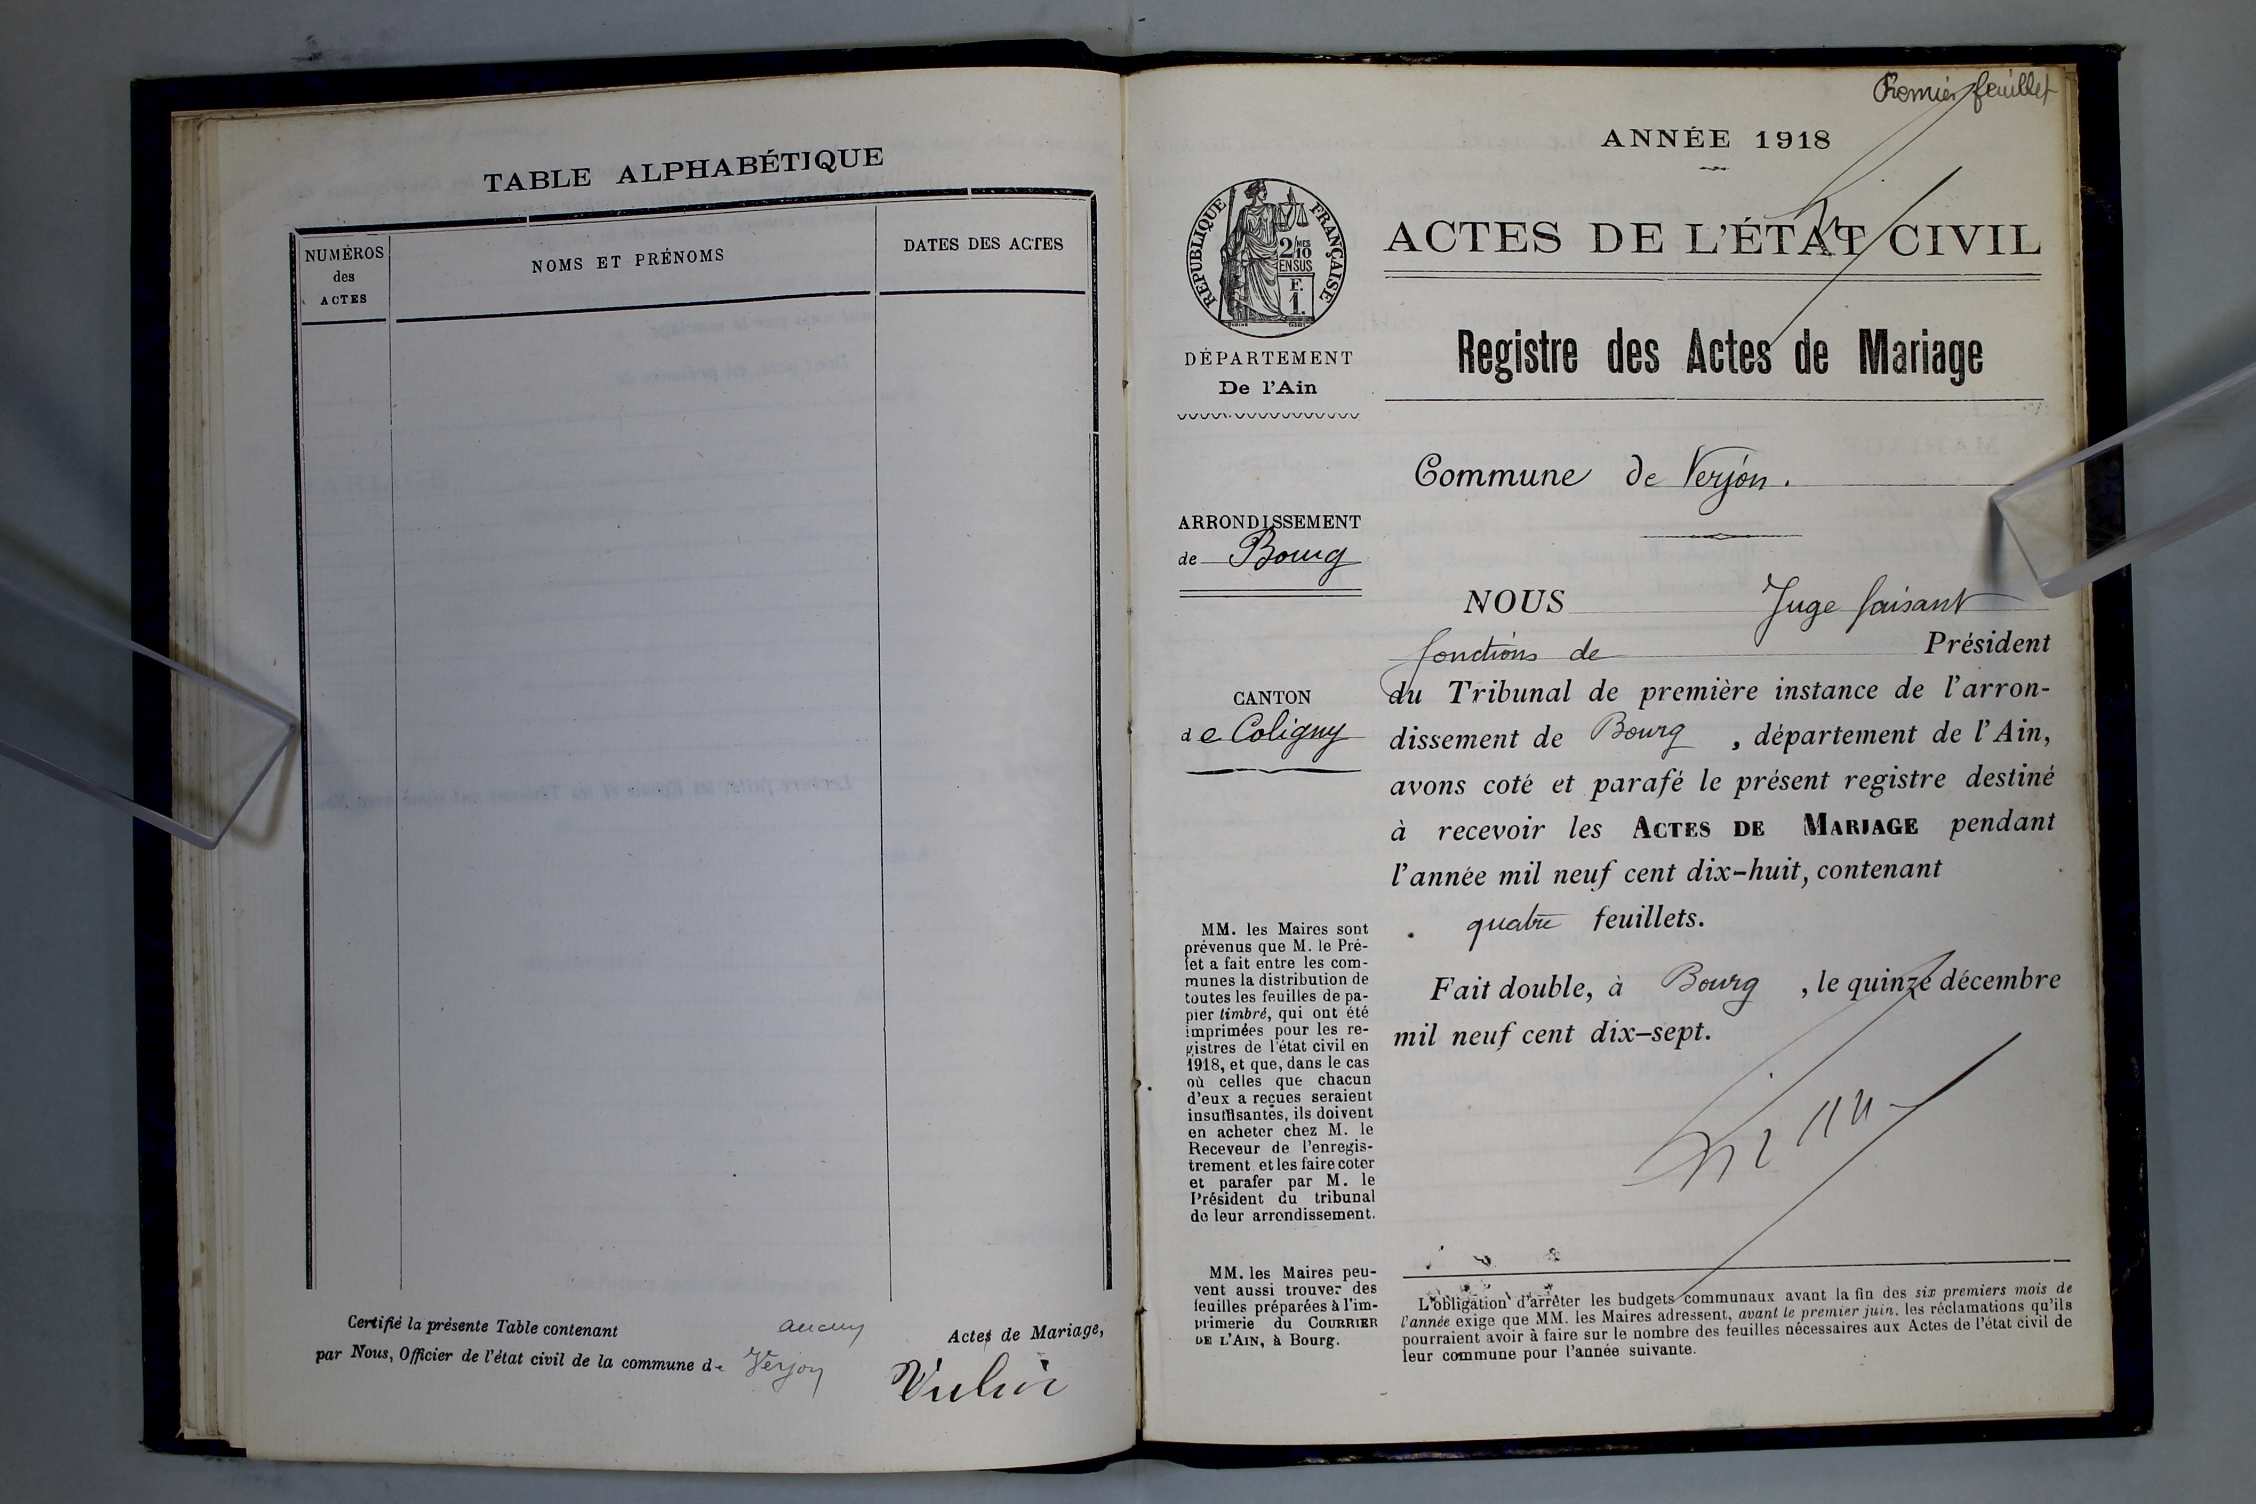 TABLE ALPHABÉTIQUE
NUMÉROS
des
ACTES
NOMS ET PRÉNOMS
DATES DES ACTES
Certifié la présente Table contenant aucun Actes de Mariage,
par Nous, Officier de l'état civil de la commune de Verjon
Premier feuillet
ANNÉE 1918
RÉPUBLIQUE FRANÇAISE
2/10 MES
EN SUS
F.
1.
DÉPARTEMENT
De l'Ain
ARRONDISSEMENT
de Bourg
CANTON
de Coligny
MM. les Maires sont
prévenus que M. le Pré-
fet a fait entre les com-
munes la distribution de
toutes les feuilles de pa-
pier timbré, qui ont été
imprimées pour les re-
gistres de l'état civil en
1918, et que, dans le cas
où celles que chacun
d'eux a reçues seraient
insuffisantes, ils doivent
en acheter chez M. le
Receveur de l'enregis-
trement et les faire coter
et parafer par M. le
Président du tribunal
de leur arrondissement.
MM. les Maires peu-
vent aussi trouver des
feuilles préparées à l'im-
primerie du COURRIER
DE L'AIN, à Bourg.
ACTES DE L'ÉTAT CIVIL
Registre des Actes de Mariage
Commune de Verjon.
NOUS Juge faisant
fonctions de Président
du Tribunal de première instance de l'arron-
dissement de Bourg, département de l'Ain,
avons coté et parafé le présent registre destiné
à recevoir les ACTES DE MARIAGE pendant
l'année mil neuf cent dix-huit, contenant
quatre feuillets.
Fait double, à Bourg, le quinze décembre
mil neuf cent dix-sept.
L'obligation d'arrêter les budgets communaux avant la fin des six premiers mois de
l'année exige que MM. les Maires adressent, avant le premier juin, les réclamations qu'ils
pourraient avoir à faire sur le nombre des feuilles nécessaires aux Actes de l'état civil de
leur commune pour l'année suivante.